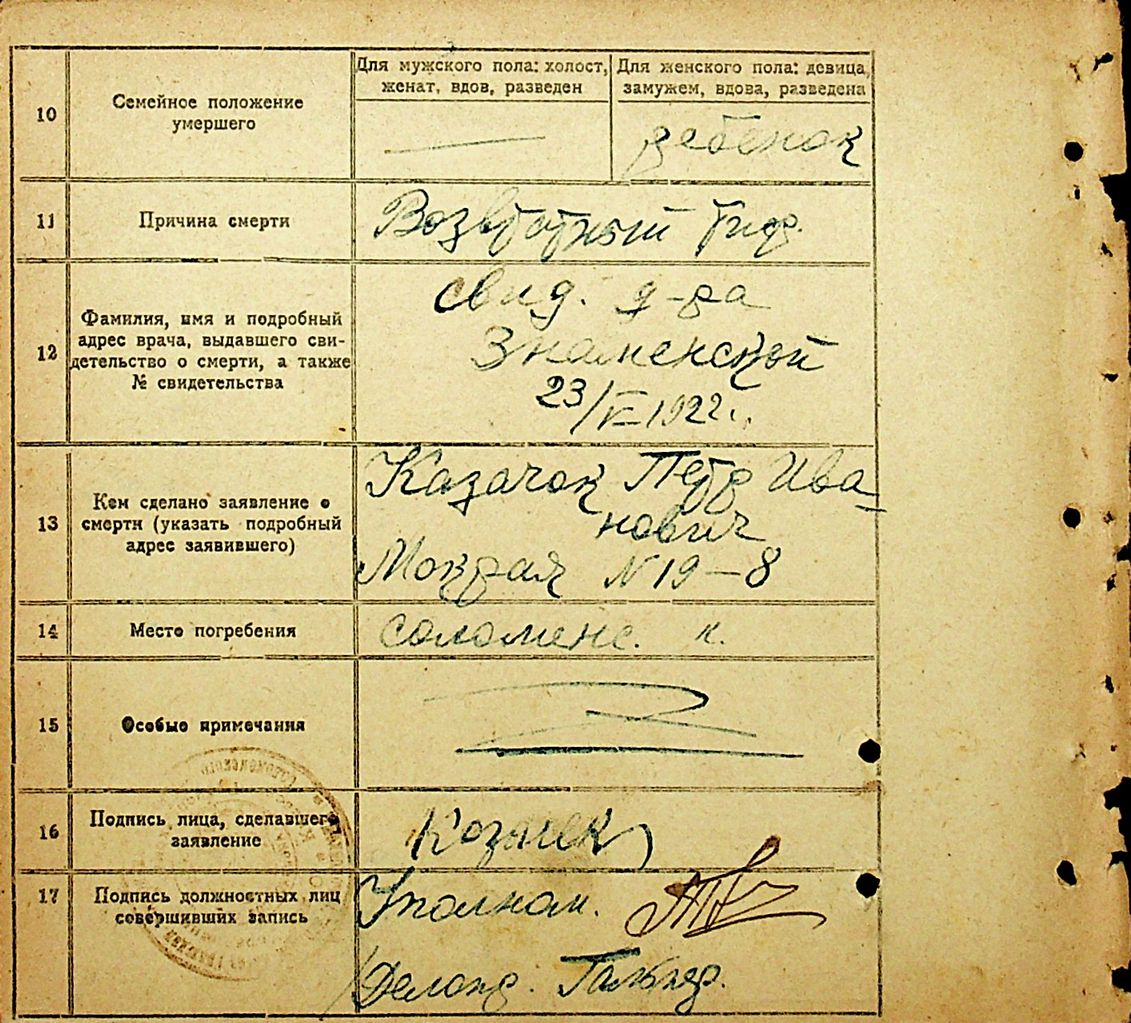 10
Семейное положение
умершего
Для мужского пола: холост,
женат, вдов, разведен
Для женского пола: девица,
замужем, вдова, разведена
—
ребенок
11
Причина смерти
Возвратный тиф.
12
Фамилия, имя и подробный
адрес врача, выдавшего сви-
детельство о смерти, а также
№ свидетельства
свид. д-ра
Знаменской
23/V-1922г.
13
Кем сделано заявление о
смерти (указать подробный
адрес заявившего)
Казачок Петр Ива-
нович
Мокрая N 19-8
14
Место погребения
соломенс. к.
15
Особые примечания
16
Подпись лица, сделавшего
заявление
17
Подпись должностных лиц
совершивших запись
Уполном.
Делопр.